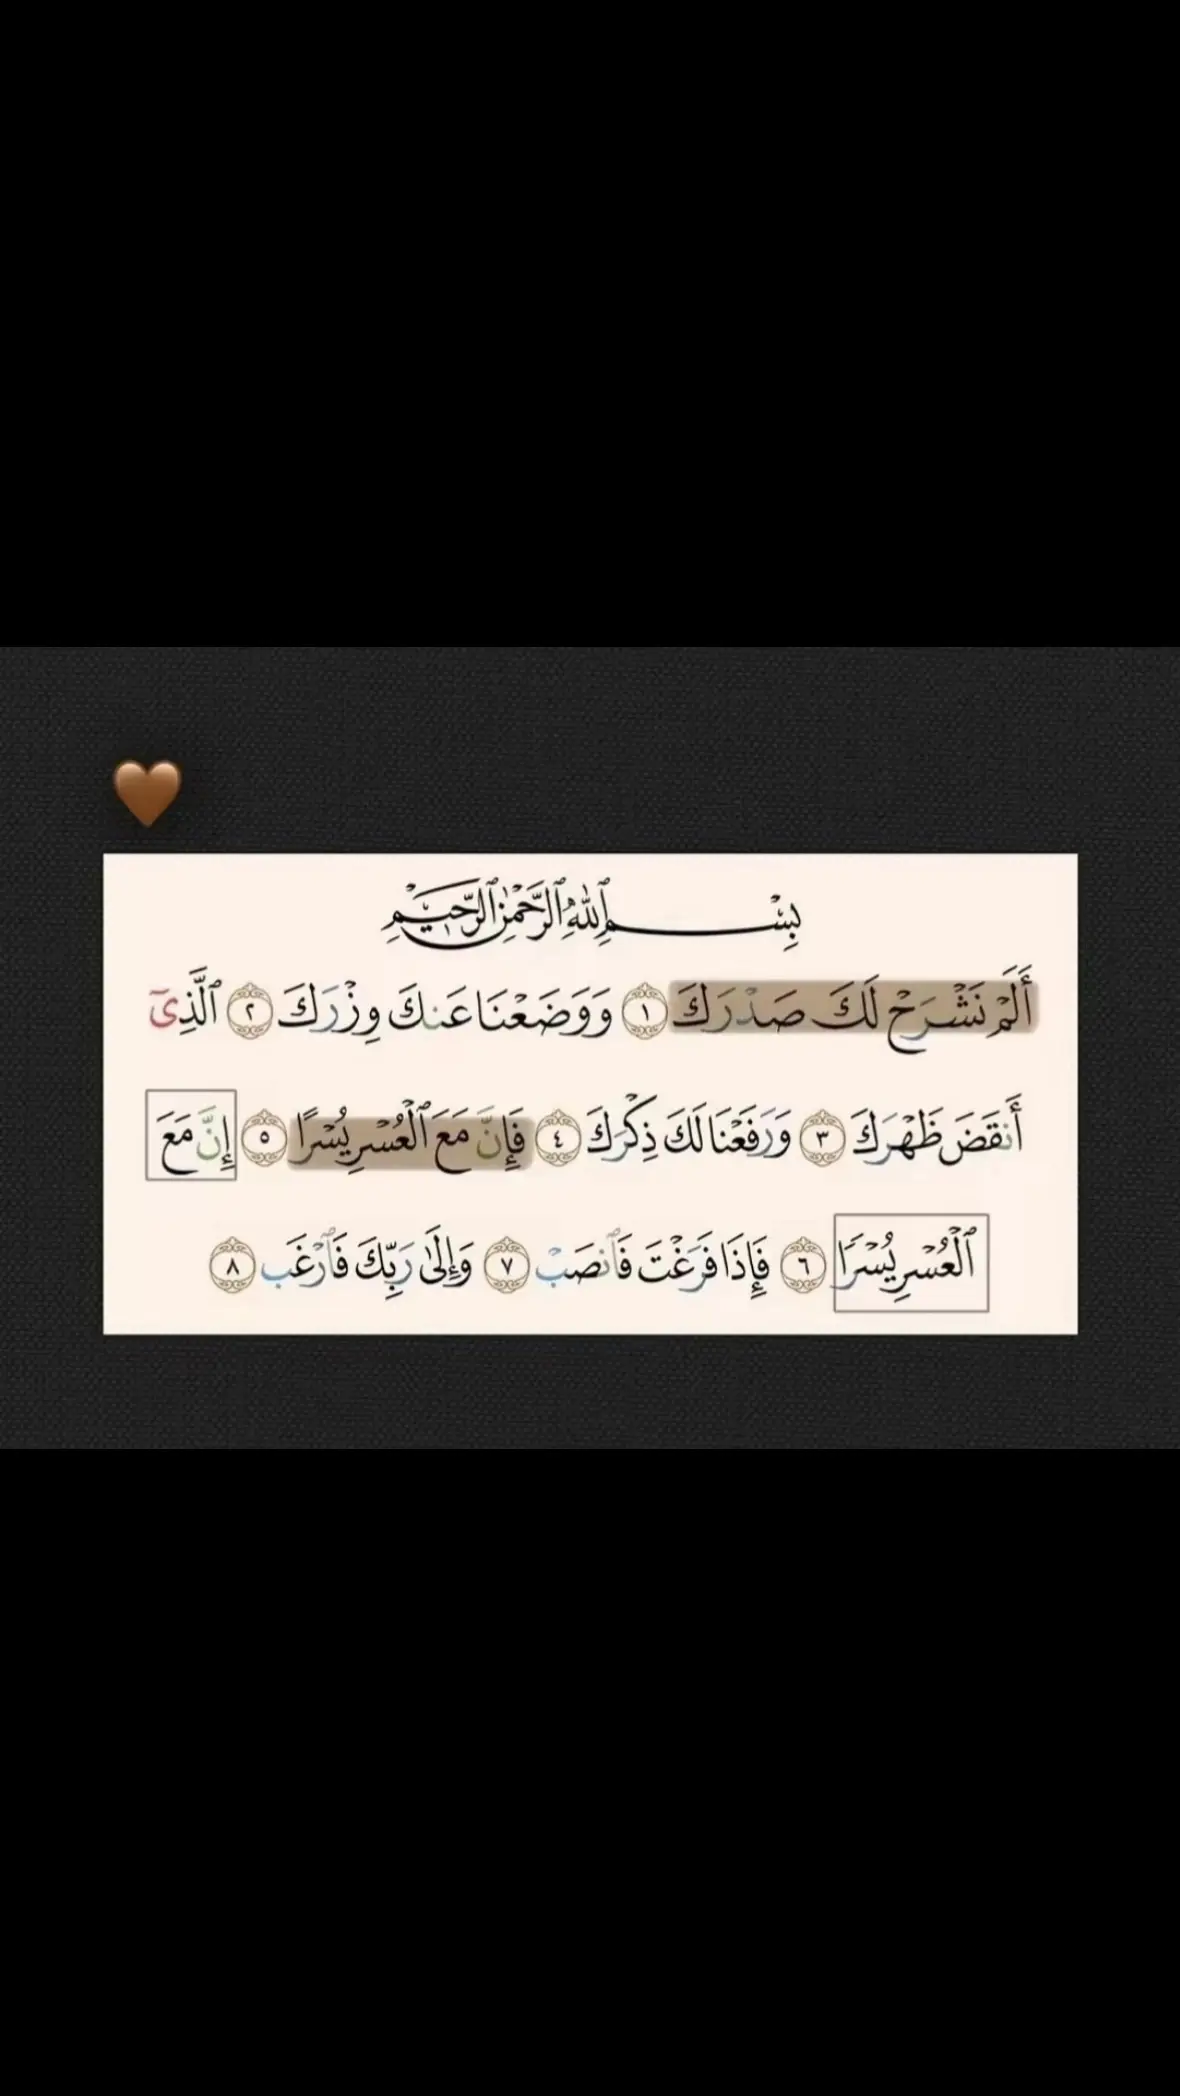 بِسْمِ ٱللَّهِ ٱلرَّحْمَٰنِ ٱلرَّحِيمِ
أَلَمْ نَشْرَحْ لَكَ صَدْرَكَ ١ وَوَضَعْنَا عَنكَ وِزْرَكَ ٢ ٱلَّذِىٓ
أَنقَضَ ظَهْرَكَ ٣ وَرَفَعْنَا لَكَ ذِكْرَكَ ٤ فَإِنَّ مَعَ ٱلْعُسْرِ يُسْرًا ٥ إِنَّ مَعَ
ٱلْعُسْرِ يُسْرًا ٦ فَإِذَا فَرَغْتَ فَٱنصَبْ ٧ وَإِلَىٰ رَبِّكَ فَٱرْغَب ٨